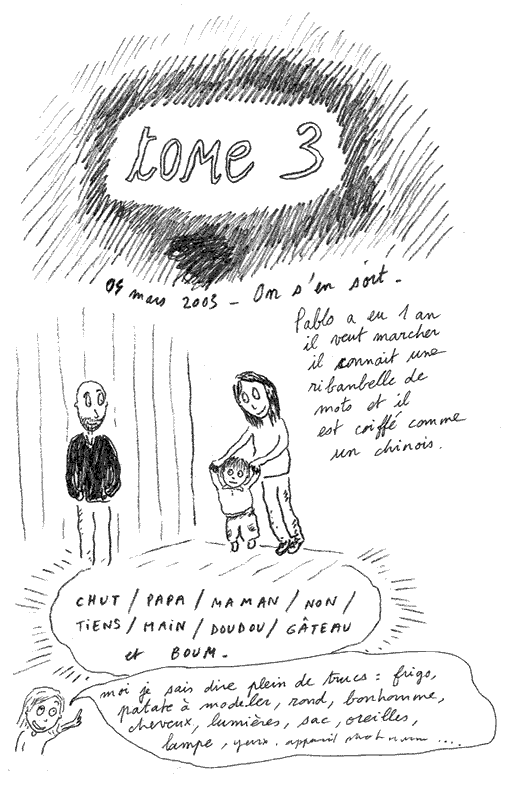 tome 3
05 mars 2003 - On s'en sort -
Pablo a eu 1 an
il veut marcher
il connait une
ribanbelle de
mots et il
est coiffé comme
un chinois.
CHUT / PAPA / MAMAN / NON /
TIENS / MAIN / DOUDOU / GÂTEAU
et BOUM.
moi je sais dire plein de trucs : frigo,
patate à modeler, rond, bonhomme,
cheveux, lumières, sac, oreilles,
lampe, yeux. appareil ....